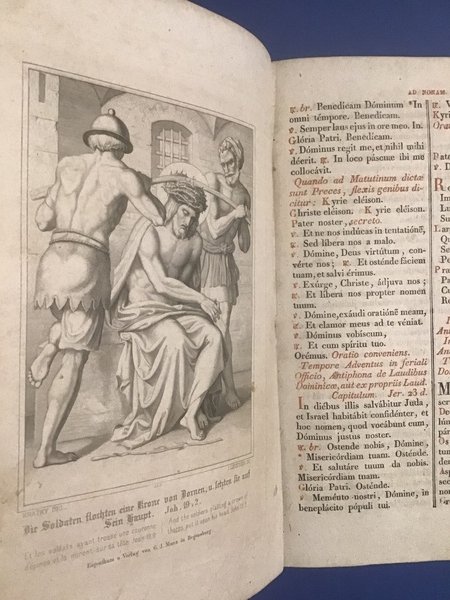 Die Soldaten flochten eine Krone von Dornen, u. setzten sie auf
Sein Haupt. Joh. 19, 2.
Et les soldats ayant tressé une couronne
d'épines et la mirent sur sa tête Joh. 19. 2
And the soldiers platted a crown of
thorns, put it upon his head.
Eigenthum u. Verlag von G. J. Manz in Regensburg.
AD NONAM.
℟. br. Benedicam Dóminum * In
omni témpore. Benedicam.
℣. Semper laus ejus in ore meo. In.
Glória Patri. Benedicam.
℣. Dóminus regit me, et nihil mihi
déerit. ℟. In loco páscuæ ibi me
collocávit.
Quando ad Matutinum dictæ
sunt Preces, flexis genibus di-
citur: Kyrie eléison.
Christe eléison. Kyrie eléison.
Pater noster, secreto.
℣. Et ne nos indúcas in tentatiónẽ,
℟. Sed líbera nos a malo.
℣. Dómine, Deus virtútum, con-
vérte nos; ℟. Et osténde fáciem
tuam, et salvi érimus.
℣. Exúrge, Christe, ádjuva nos;
℟. Et líbera nos propter nomen
tuum.
℣. Dómine, exáudi oratiónẽ meam,
℟. Et clamor meus ad te véniat.
℣. Dóminus vobíscum,
℟. Et cum spíritu tuo.
Orémus. Oratio conveniens.
Tempore Adventus in feriali
Officio, Antiphona de Laudibus
Dominicæ, aut ex propriis Laud.
Capitulum. Jer. 23 d.
In diébus illis salvábitur Juda,
et Israel habitábit confidénter, et
hoc nomen, quod vocábunt eum,
Dóminus justus noster.
℟. br. Osténde nobis, Dómine,
* Misericórdiam tuam. Osténde.
℣. Et salutáre tuum da nobis.
Misericórdiam tuam.
Glória Patri. Osténde.
℣. Meménto nostri, Dómine, in
beneplácito pópuli tui.